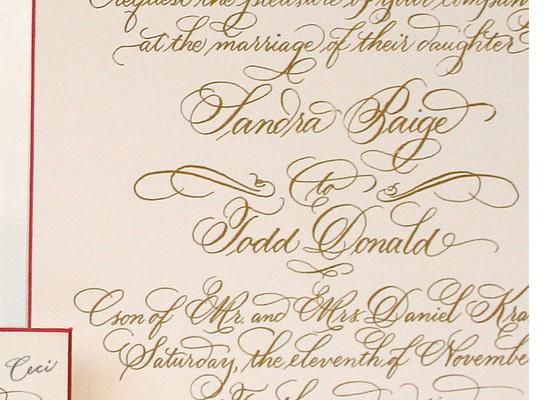 Request the pleasure of your
at the marriage of their daughter
Sandra Paige
to
Todd Donald
son of Mr. and Mrs. Daniel
Saturday, the eleventh of
Ceci